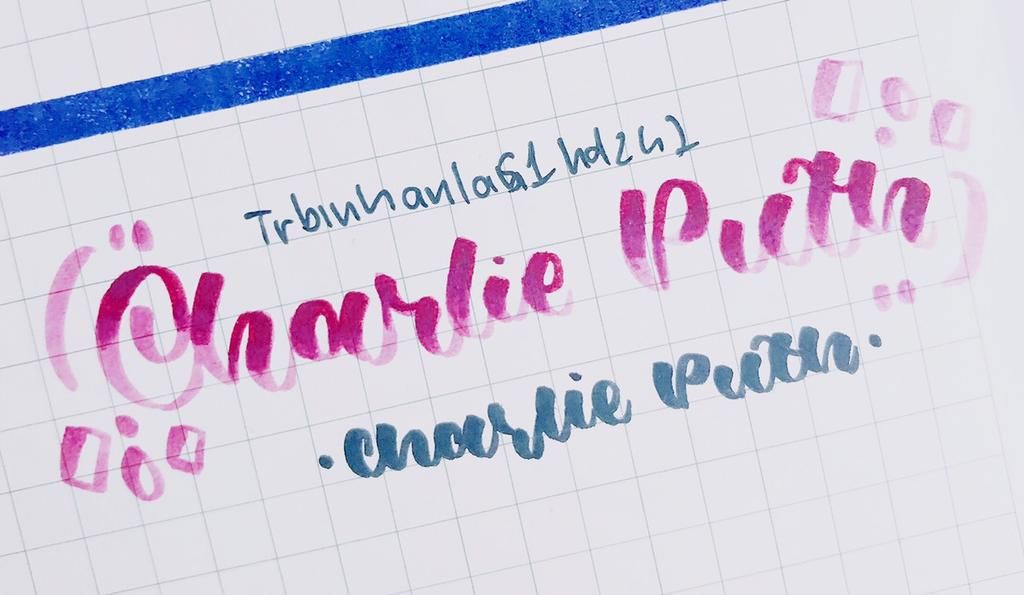 Charlie Puth
·charlie Puth·